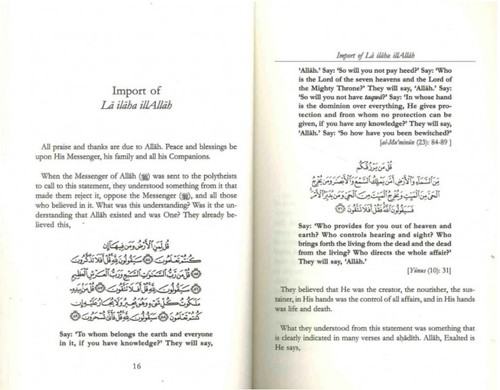 Import of
Lā ilāha illAllāh
All praise and thanks are due to Allāh. Peace and blessings be
upon His Messenger, his family and all his Companions.
When the Messenger of Allāh (ﷺ) was sent to the polytheists
to call to this statement, they understood something from it that
made them reject it, oppose the Messenger (ﷺ), and all those
who believed in it. What was this understanding? Was it the un-
derstanding that Allāh existed and was One? They already be-
lieved this,
قُل لِّمَنِ الْأَرْضُ وَمَن فِيهَا إِن
كُنتُمْ تَعْلَمُونَ ﴿٨٤﴾ سَيَقُولُونَ لِلَّهِ قُلْ أَفَلَا تَذَكَّرُونَ
﴿٨٥﴾ قُلْ مَن رَّبُّ السَّمَاوَاتِ السَّبْعِ وَرَبُّ الْعَرْشِ الْعَظِيمِ
﴿٨٦﴾ سَيَقُولُونَ لِلَّهِ قُلْ أَفَلَا تَتَّقُونَ ﴿٨٧﴾ قُلْ مَن بِيَدِهِ
مَلَكُوتُ كُلِّ شَيْءٍ وَهُوَ يُجِيرُ وَلَا يُجَارُ عَلَيْهِ إِن
كُنتُمْ تَعْلَمُونَ ﴿٨٨﴾ سَيَقُولُونَ لِلَّهِ قُلْ فَأَنَّىٰ تُسْحَرُونَ ﴿٨٩﴾
Say: 'To whom belongs the earth and everyone
in it, if you have knowledge?' They will say,
16
Import of Lā ilāha illAllāh
'Allāh.' Say: 'So will you not pay heed?' Say: 'Who
is the Lord of the seven heavens and the Lord of
the Mighty Throne?' They will say, 'Allāh.' Say:
'So will you not have taqwā?' Say: 'In whose hand
is the dominion over everything, He gives pro-
tection and from whom no protection can be
given, if you have any knowledge?' They will say,
'Allāh.' Say: 'So how have you been bewitched?'
[al-Mu'minūn (23): 84-89 ]
قُلْ مَن يَرْزُقُكُم
مِّنَ السَّمَاءِ وَالْأَرْضِ أَمَّن يَمْلِكُ السَّمْعَ وَالْأَبْصَارَ وَمَن يُخْرِجُ
الْحَيَّ مِنَ الْمَيِّتِ وَيُخْرِجُ الْمَيِّتَ مِنَ الْحَيِّ وَمَن يُدَبِّرُ الْأَمْرَ
فَسَيَقُولُونَ اللَّهُ فَقُلْ أَفَلَا تَتَّقُونَ ﴿٣١﴾
Say: 'Who provides for you out of heaven and
earth? Who controls hearing and sight? Who
brings forth the living from the dead and the dead
from the living? Who directs the whole affair?'
They will say, 'Allāh.'
[Yūnus (10): 31]
They believed that He was the creator, the nourisher, the sus-
tainer, in His hands was the control of all affairs, and in His hands
was life and death.
What they understood from this statement was something that
is clearly indicated in many verses and aḥādīth. Allāh, Exalted is
He says,